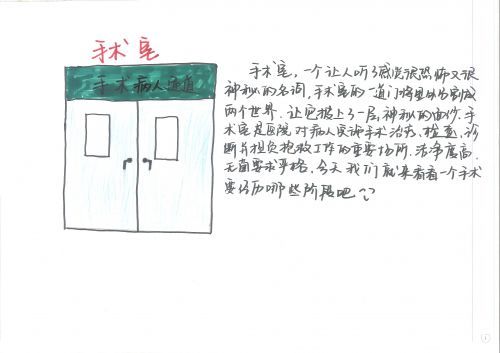 手术室
手术病人通道
手术室，一个让人听了感觉很恐怖又很
神秘的名词，手术室的一道门将里外分割成
两个世界，让它披上了一层神秘的面纱。手
术室是医院对病人实施手术治疗、检查、诊
断并担负抢救工作的重要场所，洁净度高，
无菌要求严格，今天我们就来看看一个手术
要经历哪些阶段吧